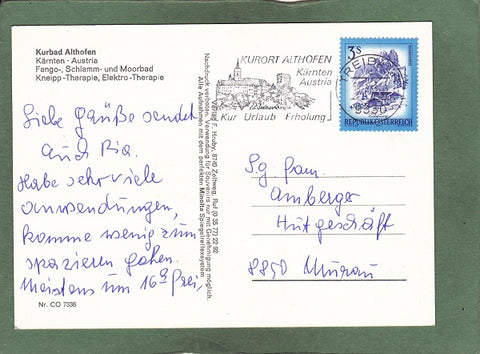 Kurbad Althofen
Kärnten - Austria
Fango-, Schlamm- und Moorbad
Kneipp-Therapie, Elektro-Therapie
Liebe Grüße sendet
auch Ria.
Habe sehr viele
anwendungen,
komme wenig zum
spazieren gehen.
Meistens um 16h frei,
Nr. CO 7336
Verlag F. Hruby, 8740 Zeltweg, Ruf (0 35 77) 22 92
Nachdruck verboten. Verwendung für Souvenirs nur mit Genehmigung möglich.
Alle Aufnahmen mit dem perfekten Minolta Spiegelreflexsystem
KURORT ALTHOFEN
Kärnten
Austria
Kur Urlaub Erholung
3 S
TREIBACH
REPUBLIK ÖSTERREICH
Sg. Fam.
Amberger
Hutgeschäft
8850 Murau